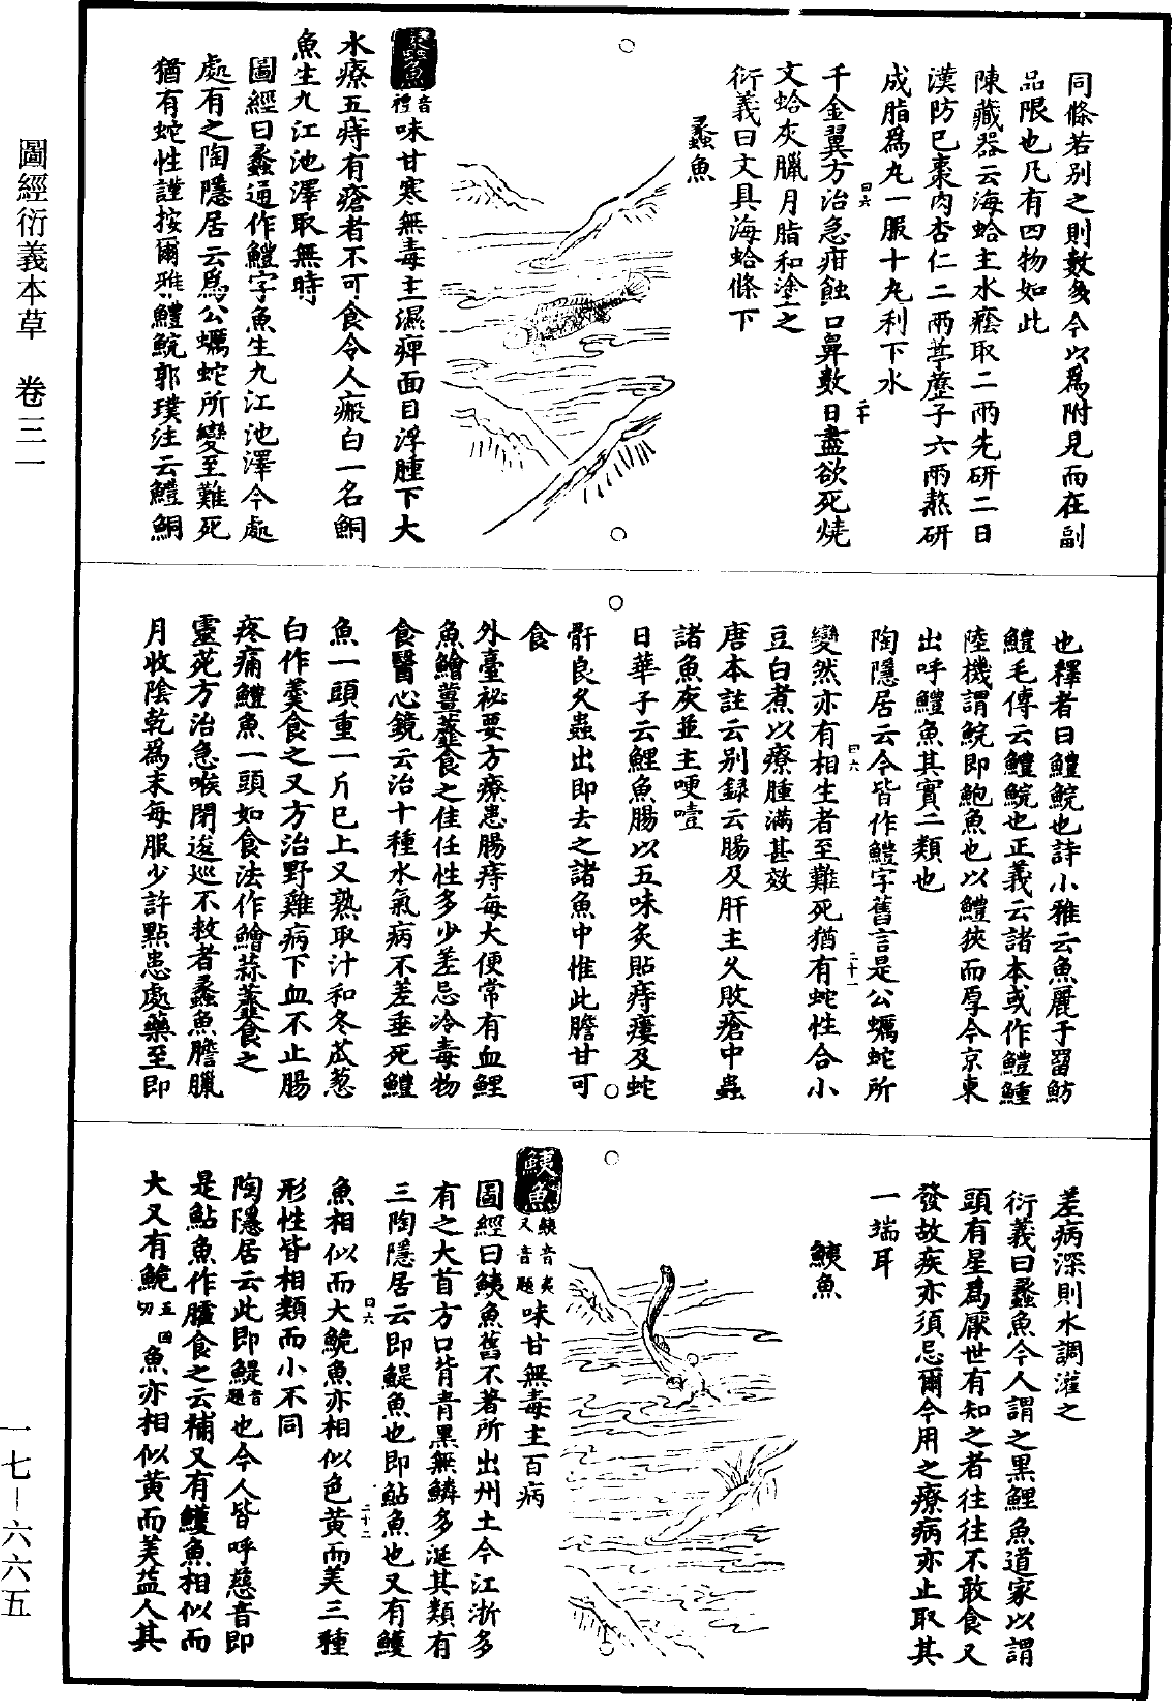 同條若别之則數多今以爲附見而在副
品限也凡有四物如此
陳藏器云海蛤主水癊取二兩先研二日
漢防已棗肉杏仁二兩葶藶子六兩熬研
成脂爲丸一服十丸利下水
千金翼方治急疳蝕口鼻數日盡欲死燒
文蛤灰臘月脂和塗之
衍義曰文具海蛤條下
蠡魚
蠡魚音禮味甘寒無毒主濕痺面目浮腫下大
水療五痔有瘡者不可食令人瘢白一名鮦
魚生九江池澤取無時
圖經曰蠡通作鱧字魚生九江池澤今處
處有之陶隱居云爲公蠣蛇所變至難死
猶有蛇性謹按爾雅鱧鯇郭璞注云鱧鮦
也釋者曰鱧鯇也詩小雅云魚麗于罶魴
鱧毛傳云鱧鯇也正義云諸本或作鱧鯶
陸機謂鯇即鮑魚也以鱧狹而厚今京東
出呼鱧魚其實二類也
陶隱居云今皆作鱧字舊言是公蠣蛇所
變然亦有相生者至難死猶有蛇性合小
豆白煮以療腫滿甚效
唐本註云别録云腸及肝主久敗瘡中蟲
諸魚灰並主哽噎
日華子云鯉魚腸以五味炙貼痔瘻及蛇
骭良久蟲出即去之諸魚中惟此膽甘可
食
外臺祕要方療患腸痔每大便常有血鯉
魚鱠薑虀食之佳任性多少差忌冷毒物
食醫心鏡云治十種水氣病不差垂死鱧
魚一頭重一斤已上又熟取汁和冬苽葱
白作羹食之又方治野雞病下血不止腸
疼痛鱧魚一頭如食法作鱠蒜虀食之
靈苑方治急喉閉逡巡不救者蠡魚膽臘
月收陰乾爲末每服少許點患處藥至即
差病深則水調灌之
衍義曰蠡魚今人謂之黑鯉魚道家以謂
頭有星爲厭世有知之者往往不敢食又
發故疾亦須忌爾今用之療病亦止取其
一端耳
鮧魚
鮧魚鮧音夷又音題味甘無毒主百病
圖經曰鮧魚舊不著所出州土今江浙多
有之大首方口背青黑無鱗多涎其類有
三陶隱居云即鯷魚也即鮎魚也又有鱯
魚相似而大鮠魚亦相似色黄而美三種
形性皆相類而小不同
陶隱居云此即鯷音題也今人皆呼慈音即
是鮎魚作臛食之云補又有鱯魚相似而
大又有鮠五回切魚亦相似黄而美益人其
圖經衍義本草 卷三一
一七－六六五
曰六
二十
曰六
二十一
曰六
二十二